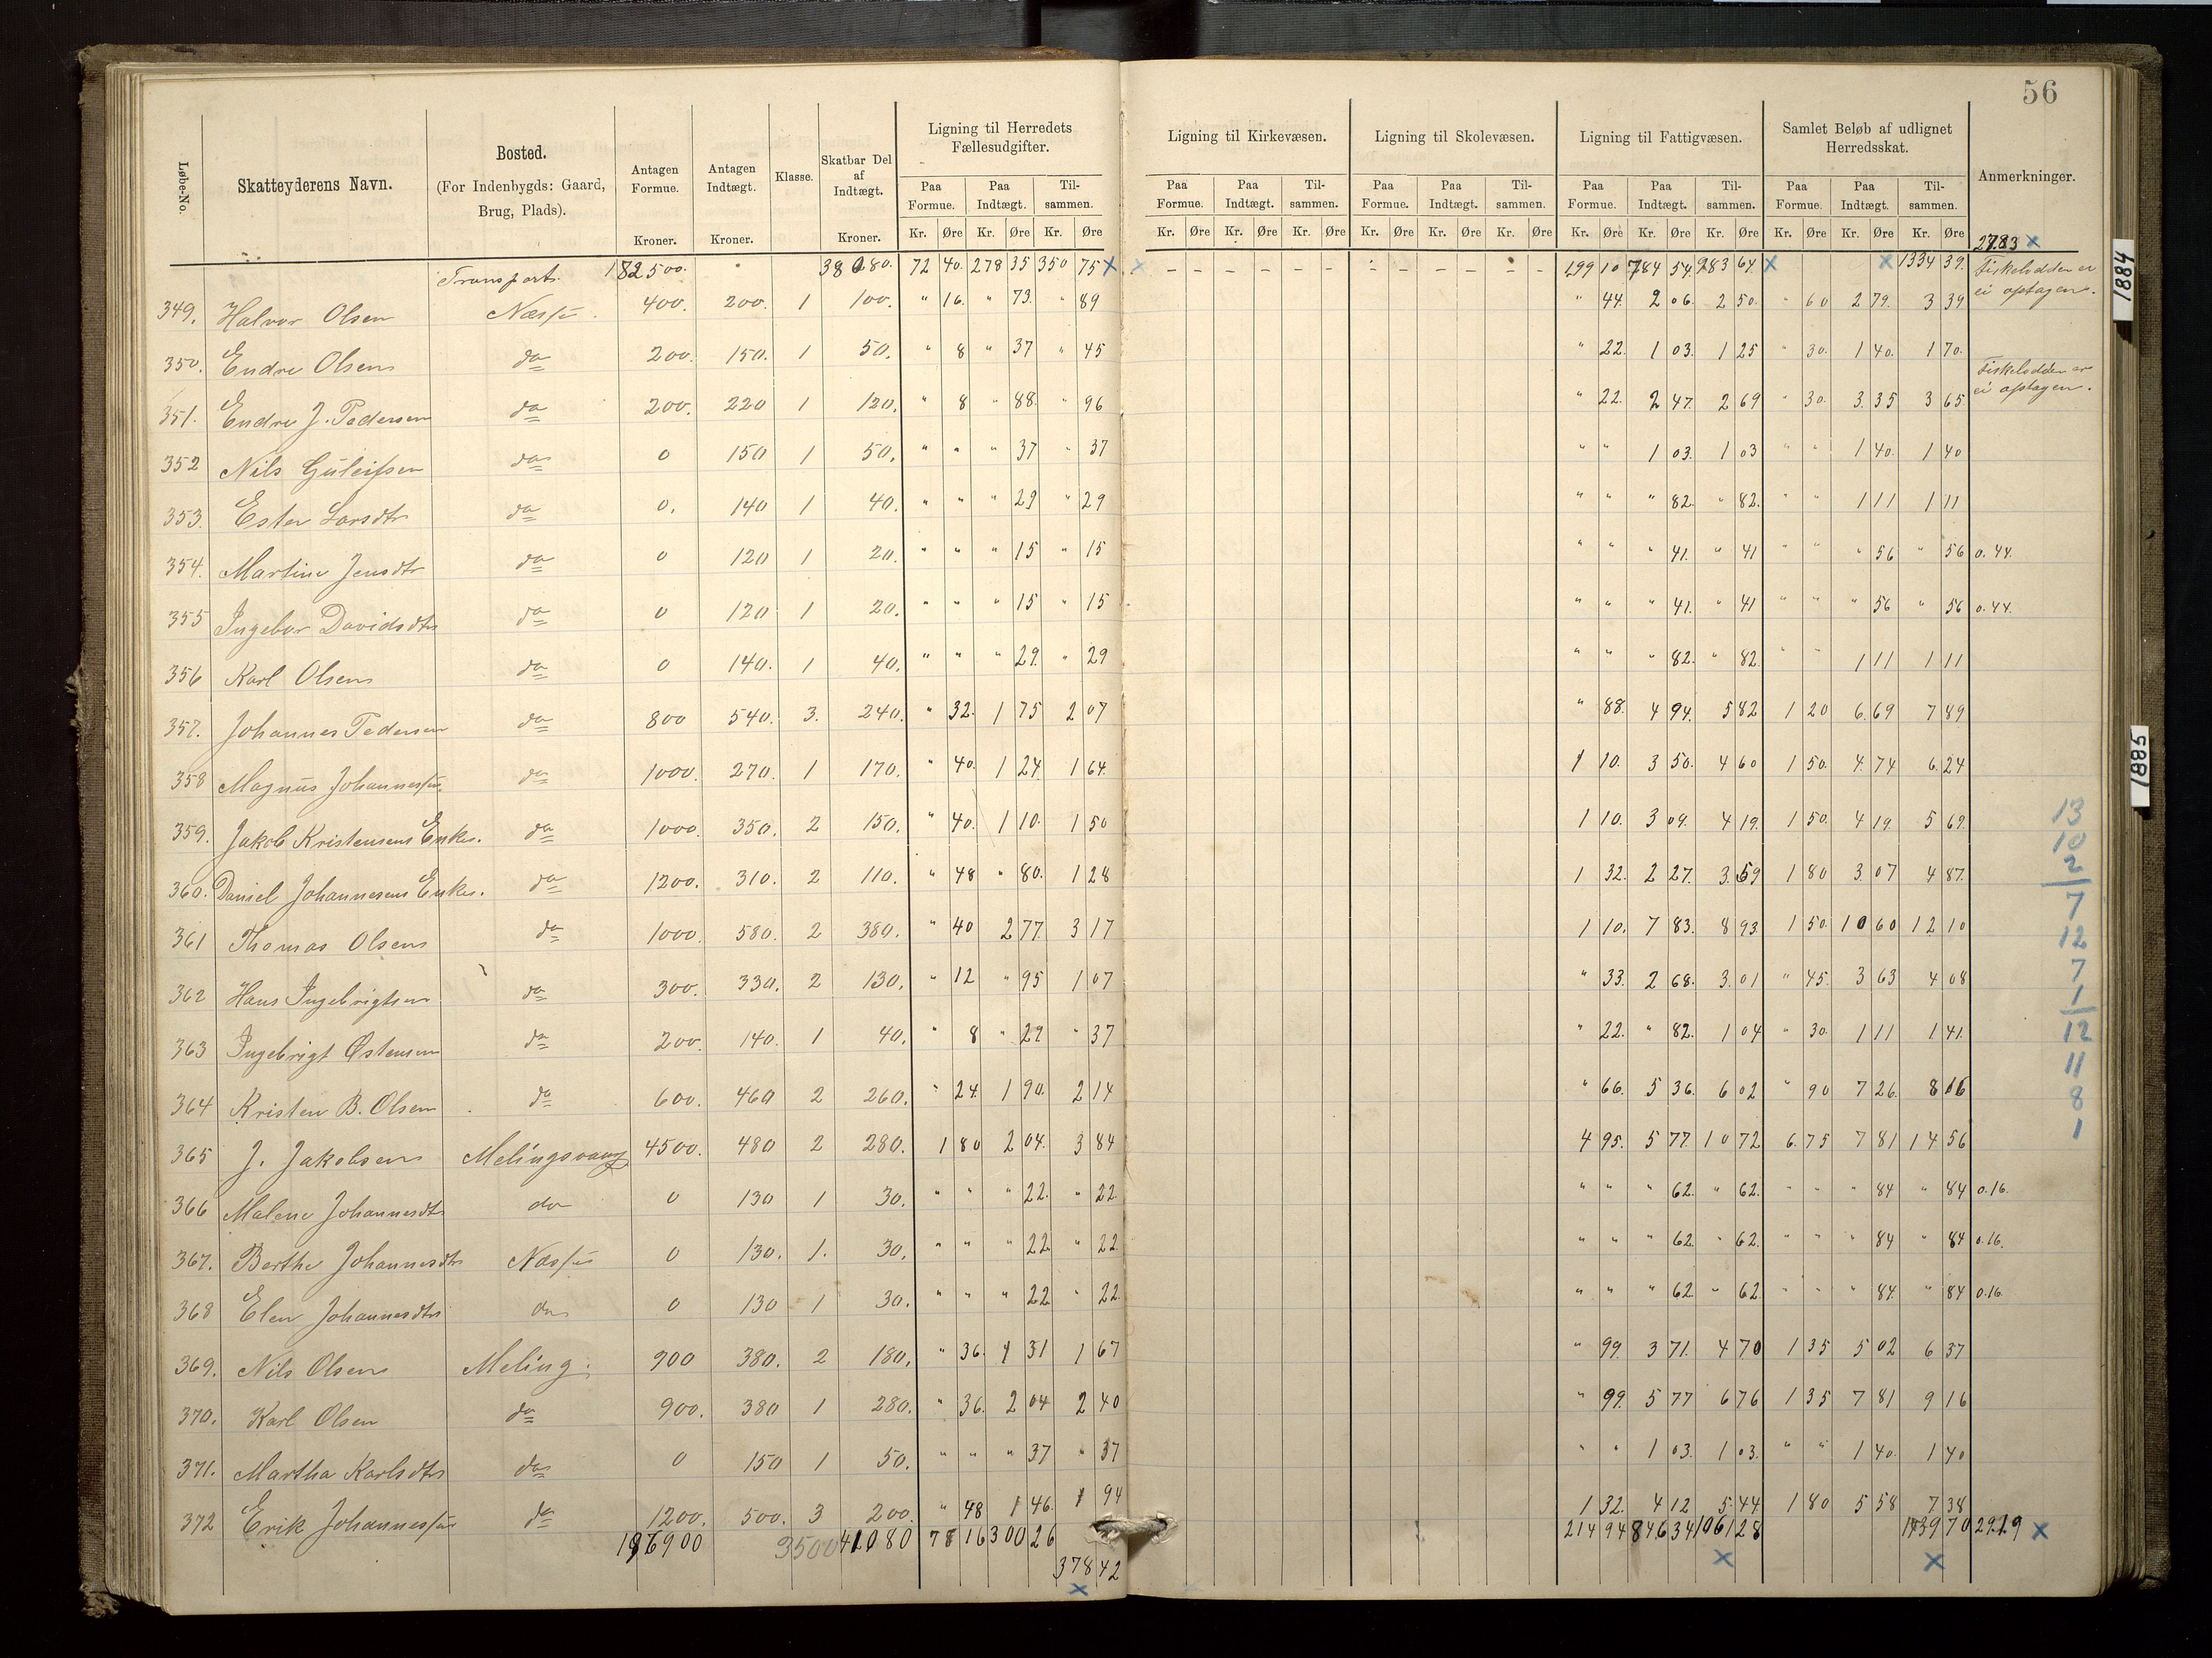 56
Løbe-No. Skatteyderens Navn. Bosted. (For Indenbygds: Gaard, Brug, Plads). Antagen Formue. Kroner. Antagen Indtægt. Kroner. Klasse. Skatbar Del af Indtægt. Kroner. Ligning til Herredets Fællesudgifter. Ligning til Kirkevæsen. Ligning til Skolevæsen. Ligning til Fattigvæsen. Samlet Beløb af udlignet Herredsskat. Anmerkninger.
Paa Formue. Paa Indtægt. Tilsammen. Paa Formue. Paa Indtægt. Tilsammen. Paa Formue. Paa Indtægt. Tilsammen. Paa Formue. Paa Indtægt. Tilsammen. Paa Formue. Paa Indtægt. Tilsammen.
Kr. Øre Kr. Øre Kr. Øre Kr. Øre Kr. Øre Kr. Øre Kr. Øre Kr. Øre Kr. Øre Kr. Øre Kr. Øre Kr. Øre Kr. Øre Kr. Øre Kr. Øre
2783 x
Transport. 182500. 38080. 72 40. 278 35 350 75 x x - - - - - - - - - - - - 199 10 784 54. 983 64. x x 1334 39.
349. Halvor Olsen Næssu. 400. 200. 1 100. " 16. " 73. " 89 " 44. 2 06. 2 50. " 60 2 79. 3 39 Fiskelodden er ei optagen.
350. Endre Olsen do 200. 150. 1 50. " 8 " 37 " 45 " 22. 1 03. 1 25 " 30. 1 40. 1 70.
351. Endre J. Pedersen do 200. 220 1 120. " 8 " 88. " 96 " 22. 2 47. 2 69 " 30. 3 35 3 65 Fiskelodden er ei optagen.
352 Nils Guleifsen do 0 150 1 50. " " " 37 " 37 " " 1 03. 1 03 " " 1 40. 1 40
353. Ester Larsdtr do 0. 140 1 40. " " " 29 " 29 " " " 82. " 82. " " 1 11 1 11
354. Martine Jensdtr do 0 120 1 20. " " " 15 " 15 " " " 41. " 41 " " " 56 " 56 0.44.
355 Ingebor Davidsdtr do 0 120 1 20. " " " 15 " 15 " " " 41. " 41 " " " 56 " 56 0.44.
356 Karl Olsen do 0 140. 1 40. " " " 29. " 29 " " " 82. " 82. " " 1 11 1 11
357. Johannes Pedersen do 800 540. 3. 240. " 32. 1 75 2 07 " 88. 4 94. 5 82 1 20 6 69 7 89
358 Magnus Johannessen do 1000. 270. 1 170. " 40. 1 24. 1 64. 1 10. 3 50. 4 60 1 50. 4 74 6 24
359. Jakob Kristensens Enke. do 1000. 350. 2 150. " 40. 1 10. 1 50 1 10. 3 09. 4 19. 1 50. 4 19. 5 69.
360. Daniel Johannesens Enke. do 1200. 310. 2 110. " 48 " 80. 1 28 1 32. 2 27. 3 59 1 80 3 07 4 87.
361 Thomas Olsen do 1000. 580. 2 380. " 40 2 77. 3 17 1 10. 7 83. 8 93. 1 50. 10 60 12 10
362 Hans Ingebrigtsen do 300. 330. 2 130. " 12 " 95 1 07 " 33. 2 68. 3 01 " 45. 3 63 4 08
363 Ingebrigt Østensen do 200. 140. 1 40. " 8 " 29 " 37 " 22. " 82. 1 04 " 30. 1 11 1 41.
364 Kristen B. Olsen do 600. 460 2 260. " 24. 1 90. 2 14 " 66. 5 36. 6 02 " 90 7 26. 8 16
365 J. Jakobsen Melingsvaag 4500. 480 2 280. 1 80 2 04. 3 84 4 95. 5 77. 10 72 6 75 7 81 14 56
366 Malene Johannesdtr do 0 130 1 30. " " " 22. " 22 " " " 62. " 62. " " " 84 " 84 0.16.
367. Berthe Johannesdtr Næssu 0 130. 1. 30. " " " 22 " 22. " " " 62. " 62. " " " 84 " 84 0.16.
368 Elen Johannesdtr do 0 130 1 30. " " " 22 " 22. " " " 62. " 62. " " " 84. " 84 0.16.
369. Nils Olsen Meling. 900 380. 2 180. " 36. 1 31 1 67 " 99. 3 71. 4 70 1 35 5 02 6 37
370. Karl Olsen do 900. 380 1 280. " 36. 2 04 2 40 " 99. 5 77 6 76 1 35 7 81 9 16
371. Martha Karlsdtr do 0 150 1 50. " " " 37 " 37 " " 1 03. 1 03. " " 1 40. 1 40
372 Erik Johannessen do 1200. 500. 3 200. " 48 1 46. 1 94 1 32. 4 12 5 44 1 80 5 58 7 38
196900 3500 41080 78 16 300 26 214 94 846 34 1061 28 1439 70 2929 x
378 42
x x x
13
10
2
7
12
7
1
12
11
8
1
1884
1885